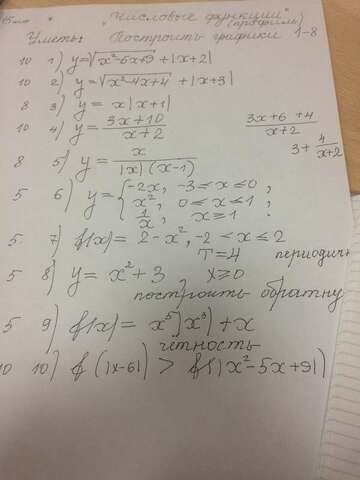 "Числовые функции"
(профиль)
Уметь: Построить графики 1-8
10 1) y=√(x²-6x+9) + |x+2|
10 2) y=√(x²-4x+4) + |x+3|
8 3) y = x|x+1|
10 4) y = (3x+10)/(x+2)
(3x+6+4)/(x+2)
3 + 4/(x+2)
8 5) y = x/(|x|(x-1))
5 6) y = { -2x, -3≤x≤0,
x², 0≤x≤1,
1/x, x≥1.
5 7) f(x) = 2 - x², -2<x≤2
T=4 периодич
5 8) y = x²+3, x≥0
построить обратну
5 9) f(x) = x⁵|x³| + x
чётность
10 10) f(|x-6|) > f(|x²-5x+9|)